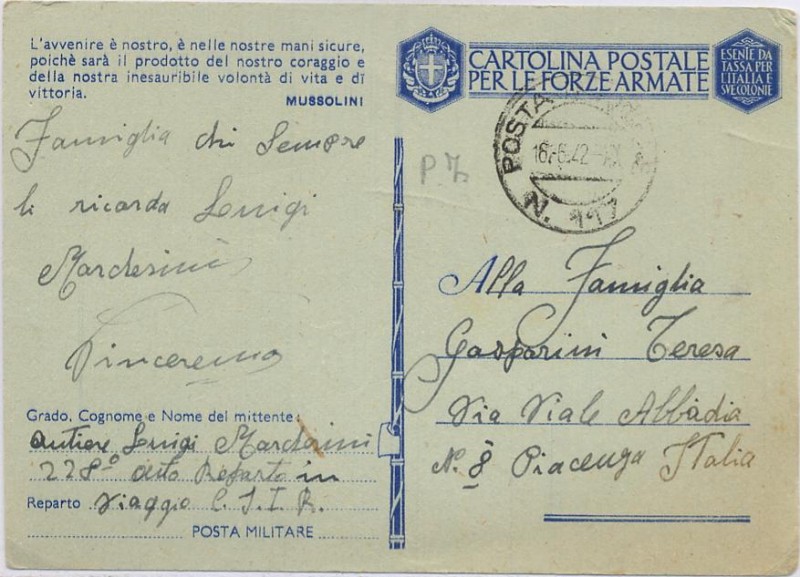 L'avvenire è nostro, è nelle nostre mani sicure,
poichè sarà il prodotto del nostro coraggio e
della nostra inesauribile volontà di vita e di
vittoria.
MUSSOLINI
Famiglia chi Sempre
le ricorda Luigi
Marchesini
Vinceremo
Grado, Cognome e Nome del mittente:
Autiere Luigi Marchesini
228° Auto Reparto in
Reparto viaggio C.S.I.R.
POSTA MILITARE
CARTOLINA POSTALE
PER LE FORZE ARMATE
ESENTE DA
TASSA PER
L'ITALIA E
SVE COLONIE
POSTA
16.6.42-XX
N. 117
Alla Famiglia
Gasparini Teresa
Via Viale Abbadia
N. 8 Piacenza Italia